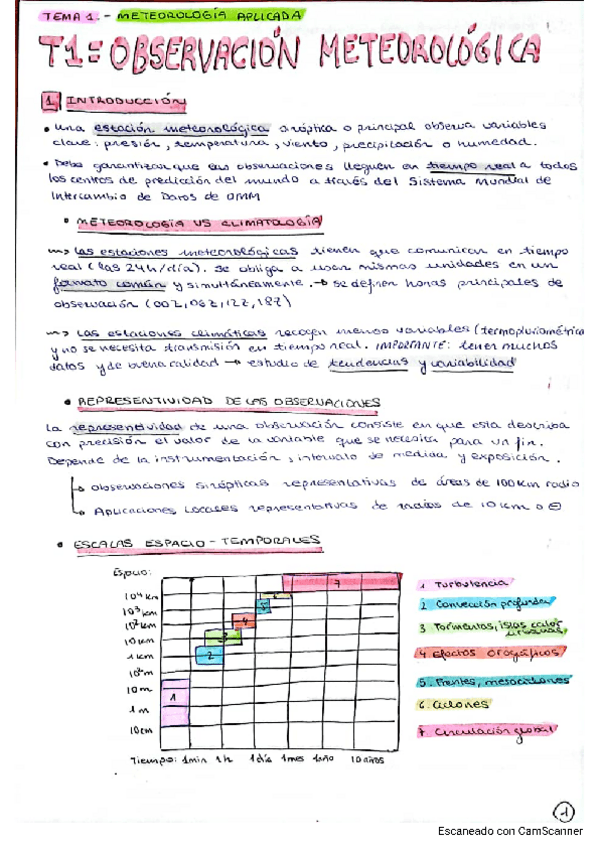 TEMA 1 - METEOROLOGÍA APLICADA
T1 = OBSERVACIÓN METEOROLÓGICA
1 INTRODUCCIÓN
• Una estación meteorológica sinóptica o principal observa variables
clave: presión, temperatura, viento, precipitación o humedad.
• Debe garantizar que las observaciones lleguen en tiempo real a todos
los centros de predicción del mundo a través del Sistema Mundial de
Intercambio de Datos de OMM
• METEOROLOGÍA VS CLIMATOLOGÍA
→ Las estaciones meteorológicas tienen que comunicar en tiempo
real (las 24h/día). Se obliga a usar mismas unidades en un
formato común y simultáneamente. → se definen horas principales de
observación (00Z, 06Z, 12Z, 18Z)
→ Las estaciones climáticas recogen menos variables (termopluviométrica
y no se necesita transmisión en tiempo real. IMPORTANTE: tener muchos
datos y de buena calidad → estudio de tendencias y variabilidad
• REPRESENTIVIDAD DE LAS OBSERVACIONES
La representividad de una observación consiste en que esta describa
con precisión el valor de la variable que se necesita para un fin.
Depende de la instrumentación, intervalo de medida y exposición.
↳ Observaciones sinópticas representativas de áreas de 100 km radio
↳ Aplicaciones Locales representativas de radios de 10 km o ⊖
• ESCALAS ESPACIO-TEMPORALES
Espacio:
10⁴ km
10³ km
10² km
10 km
1 km
10² m
10 m
1 m
10 cm
7
6
5
4
3
2
1
Tiempo: 1 min 1 h 1 día 1 mes 1 año 10 años
1 Turbulencia
2 Convección profunda
3 Tormentas, islas calor
urbanas
4 Efectos orográficos
5. Frentes, mesociclones
6. Ciclones
7. Circulación global
1
Escaneado con CamScanner